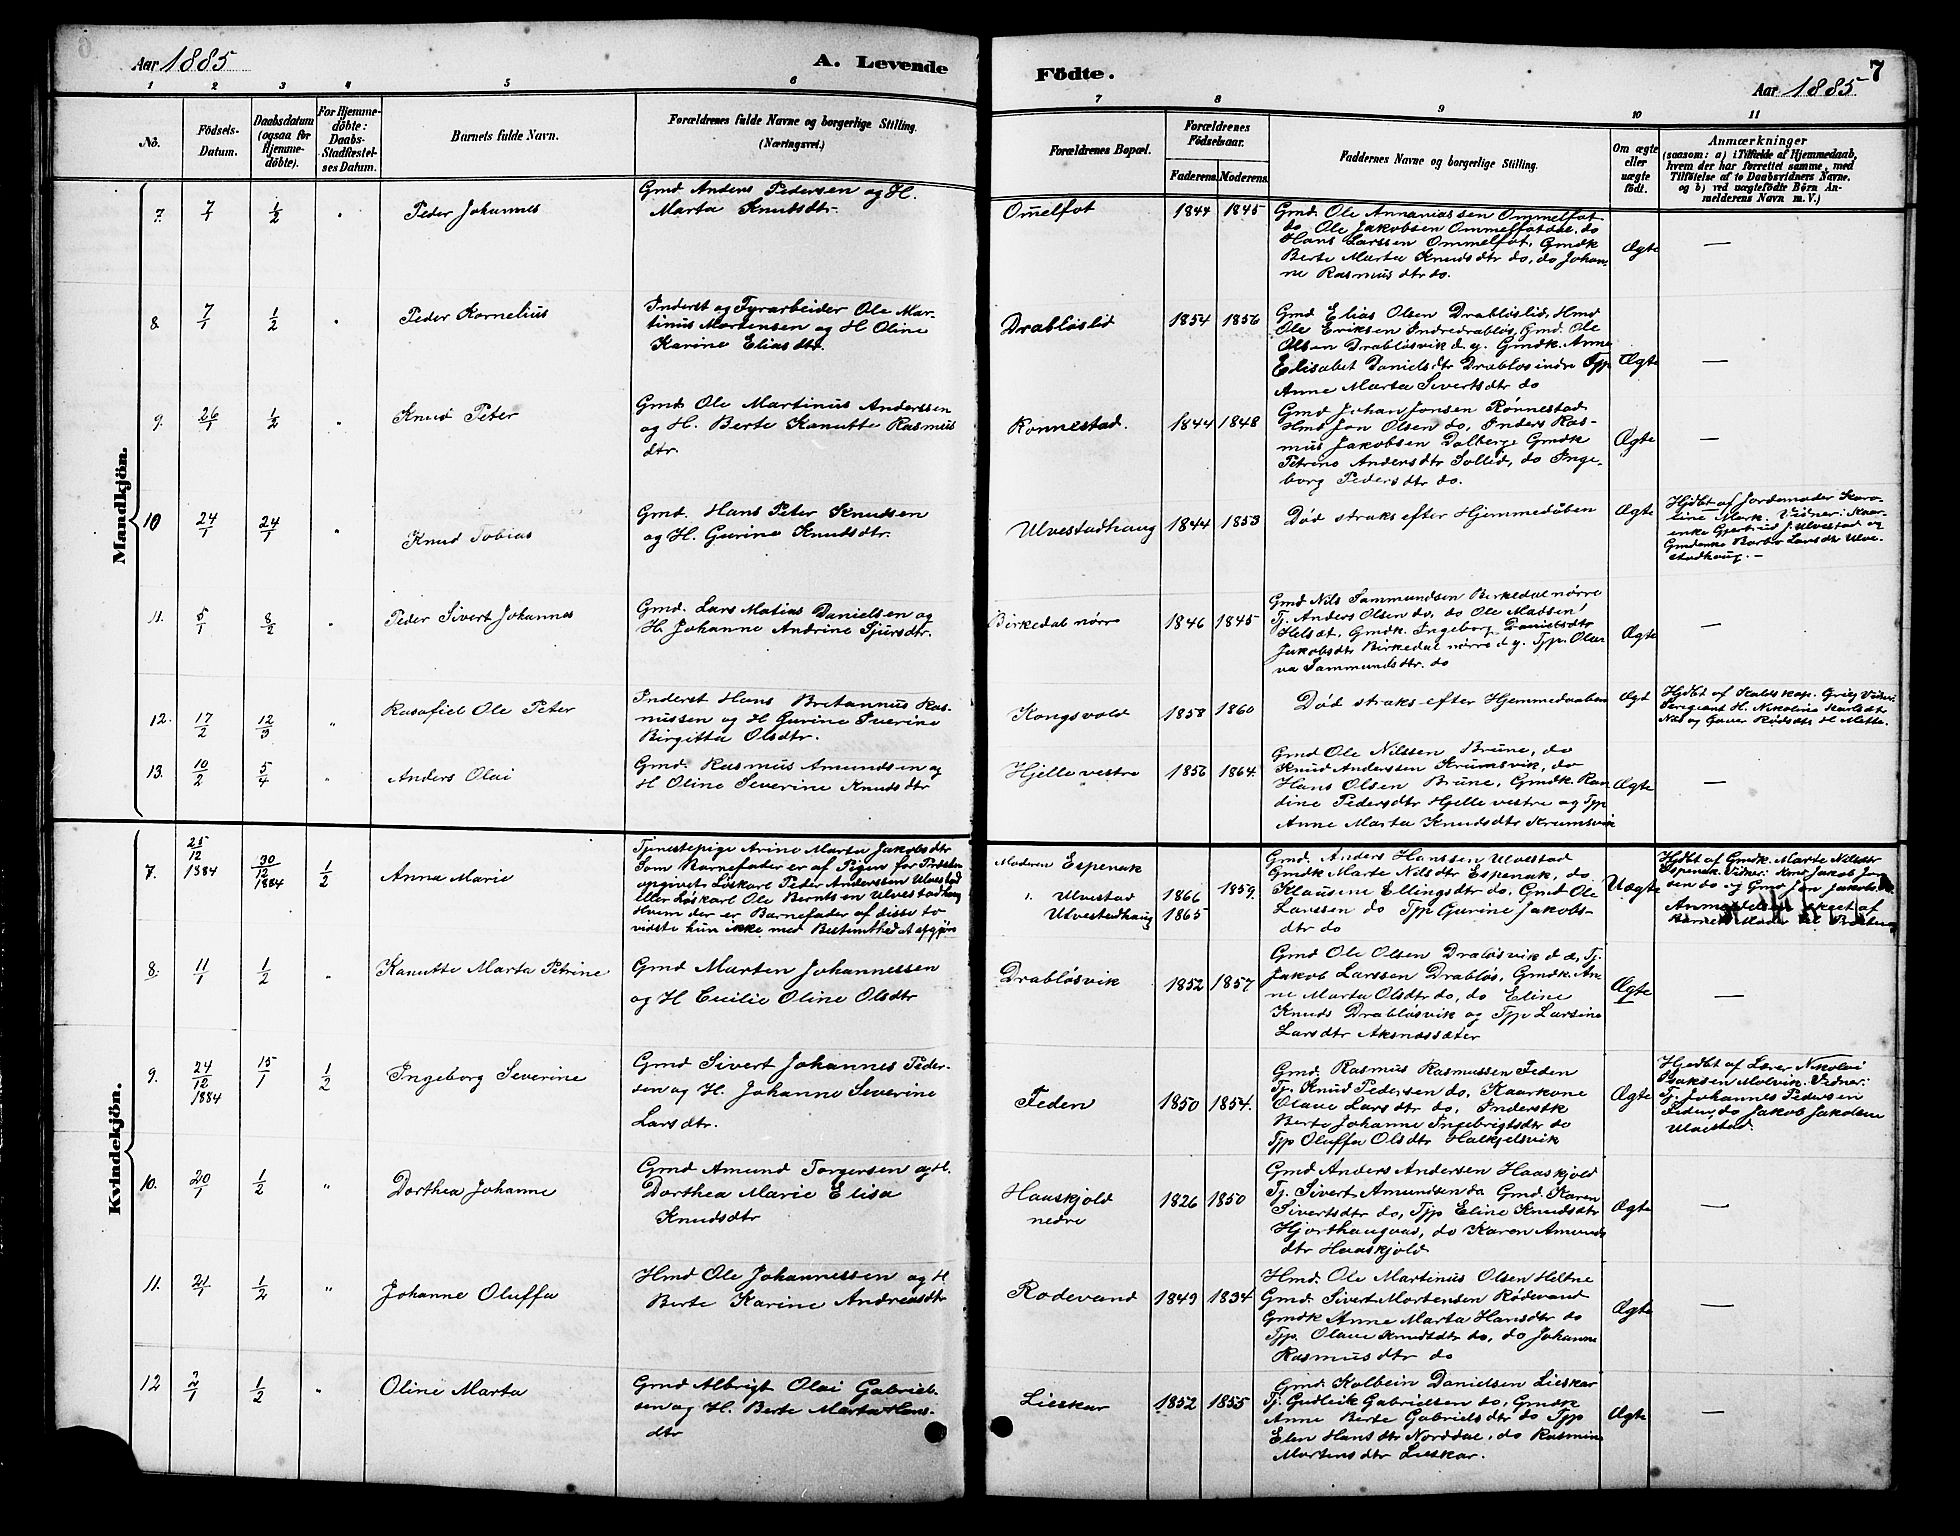 Aar 1885
A. Levende
Födte.
Aar 1885
7
1 2 3 4 5 6 7 8 9 10 11
No.
Födsels-
Datum.
Daabsdatum
(ogsaa for
Hjemme-
döbte).
For Hjemme-
döbte:
Daabs-
Stadfæstel-
ses Datum.
Barnets fulde Navn.
Forældrenes fulde Navne og borgerlige Stilling.
(Næringsvei.)
Forældrenes Bopæl.
Forældrenes
Födselsaar.
Faderens. Moderens.
Faddernes Navne og borgerlige Stilling.
Om ægte
eller
uægte
födt.
Anmærkninger
(saasom: a) i Tilfælde af Hjemmedaab,
hvem der har forrettet samme, med
Tilföielse af to Daabsvidners Navne.
og b) ved uægtefödte Börn An-
melderens Navn m. V.)
Mandkjön.
7. 7/1 1/2 " Peder Johannes
Gmd Anders Pedersen og H.
Marta Knutsdtr.
Omelfot 1844 1845
Gmd. Ole Annaniassen Ommelfot
do Ole Jakobsen Ommelfotdal, do
Hans Larssen Ommelfot, Gmdk
Berte Marta Knudsdtr do, do Johan-
ne Rasmusdtr do.
Ægte —
8. 7/1 1/2 " Peder Kornelius
Inderst og Fyrarbeider Ole Mar-
tinus Mortensen og H Oline
Karine Eliasdtr.
Drabløslid 1854 1856
Gmd Elias Olsen Drabløslid, Hmd
Ole Eriksen Indredrabløs, Gmd. Ole
Olsen Drabløsvik d. y. Gmdk. Anne
Elisabet Danielsdtr Drabløs indre Tpp
Anne Marta Sivertsdtr do
Ægte —
9. 26/1 1/2 " Knud Peter
Gmd Ole Martinus Anderssen
og H. Berte Kanutte Rasmus
dtr.
Rønnestad. 1844 1848
Gmd Johan Jonsen Rønnestad
Hmd Jon Olsen do, Inders Ras-
mus Jakobsen Dalberg, Gmdk
Petrine Andersdtr Sollid, do Inge-
borg Pedersdtr do.
Ægte —
10 24/1 24/1 " Knud Tobias
Gmd. Hans Peter Knudsen
og H. Gurine Knudsdtr.
Ulvestadhaug 1844 1853
Død straks efter Hjemmedøben
Ægte
Hjdbt af Jordemoder Karo-
line Mark. Vidner: Kaar-
enke Gjertrud J. Ulvestad og
Gmdenke Barbro Larsdtr Ulve-
stadhaug. —
11. 5/1 8/2 " Peder Sivert Johannes
Gmd. Lars Matias Danielsen og
H. Johanne Andrine Sjursdtr.
Birkedal nørre 1846 1845
Gmd Nils Sammundsen Birkedal nørre
Tj. Anders Olsen do, do Ole Madsen
Helsdt, Gmdk. Ingeborg Danielsdtr
Jakobsdtr Birkedal nørre d y. Tpp. Olau
va Sammundsdtr. do
Ægte —
12. 17/2 12/3 " Rasafiel Ole Peter
Inderst Hans Bretannus Ras-
mussen og H Gurine Sverine
Birgitta Olsdtr.
Kongsvold 1858 1860
Død straks efter Hjemmedaaben
Ægt
Hjdbt af Kap. Grieg Vidner:
Sergeant H. Nikoline
13. 10/2 5/4 " Anders Olai
Gmd. Rasmus Amundsen og
H Oline Severine Knudsdtr
Hjelle vestre 1856 1864.
Gmd Ole Nilssen Brune, do
Knud Anderssen Krumsvik, do
Hans Olsen Brune, Gmdk. Ran
dine Pedersdtr Hjelle vestre og Tpp
Anne Marta Knudsdtr Krumsvik
Ægte —
Kvindekjön.
7. 25/12 1884 30/12 1884 1/2 Anna Marie
Tjenestepige Arine Marta Jakobsdtr
Som Barnefader er af Pigen for Præsten
opgivet: Løskarl Peder Anderssen Ulvestad
eller Løskarl Ole Berntsen Ulvestadhaug
Hvem der er Barnefader af disse to
vidste hun ikke med Bestemthed at afgjøre
Moderen Espenak
" Ulvestad 1866 1859.
Ulvestadhaug 1865
Gmd. Anders Hanssen Ulvestad
Gmdk Marte Nilsdtr Espenak, do.
Klausine Ellingsdtr do. Gmd Ole
Larssen do Tpp Gurine Jakobs-
dtr do
Uægte
Hjdbt af Gmdk. Marte Nilsdtr
Espenak. Vidner: Jakob Jen
sen do og Gmd Jon Jakobs. do
Anmeldelsen skeet af
Barnets Moder til Præsten
8. 11/1 1/2 " Kanutte Marta Petrine
Gmd Marten Johannessen
og H Cecilie Oline Olsdtr
Drabløsvik 1852 1857
Gmd Ole Olsen Drabløsvik d æ, Tj.
Jakob Larssen Drabløs, Gmdk. An-
ne Marta Olsdtr do, do Eline
Knuds Drabløsvik og Tpp Larsine
Larsdtr Aksnessæter
Ægte —
9. 24/12 1884 15/1 1/2 Ingeborg Severine
Gmd Sivert Johannes Peder-
sen og H. Johanne Severine
Larsdtr.
Feden 1850 1854.
Gmd. Rasmus Rasmussen Feden
Tj. Knud Pedersen do, Kaarkone
Olave Larsdtr do, Inderstk
Berte Johanne Ingebrigtsdtr do
Tpp Oluffa Olsdtr Halkjelsvik
Ægte
Hjdbt af Lærer Nikolai
Isaksen Molvik. Vidner:
Tj. Johannes Pedersen
Feden, do Jakob Jakobsen
Ulvestad
10. 20/1 1/2 " Dorthea Johanne
Gmd Amund Torgersen og H.
Dorthea Marie Elisa
Knudsdtr
Haaskjold
nedre 1826 1850
Gmd Anders Andersen Haaskjold
Tj. Sivert Amundsen do Gmd. Karen
Sivertsdtr do, Tpp Eline Knudsdtr
Hjorthaugvad, do Karen Amunds
dtr Haaskjold
Ægte —
11. 21/1 1/2 " Johanne Oluffa
Hmd Ole Johannessen og H.
Berte Karine Andreasdtr
Rødevand 1849 1834
Hmd. Ole Martinus Olsen Heltne
Gmd. Sivert Mortensen Rødevand
Gmdk Anne Marta Hansdtr do
Tpp. Olave Knudsdtr do, do Johanne
Rasmusdtr do
Ægte —
12 2/1 1/2 " Oline Marta
Gmd Albrigt Olai Gabriel-
sen og H. Berte Marta Hans-
dtr
Lieskar 1852 1855
Gmd Kolbein Danielsen Lieskar
Tj. Gudleik Gabrielsen do, Gmdk
Anne Berte Gabrielsdtr do Tpp
Elen Hansdtr Norddal, do Rasmine
Martensdtr Lieskar.
Ægte —